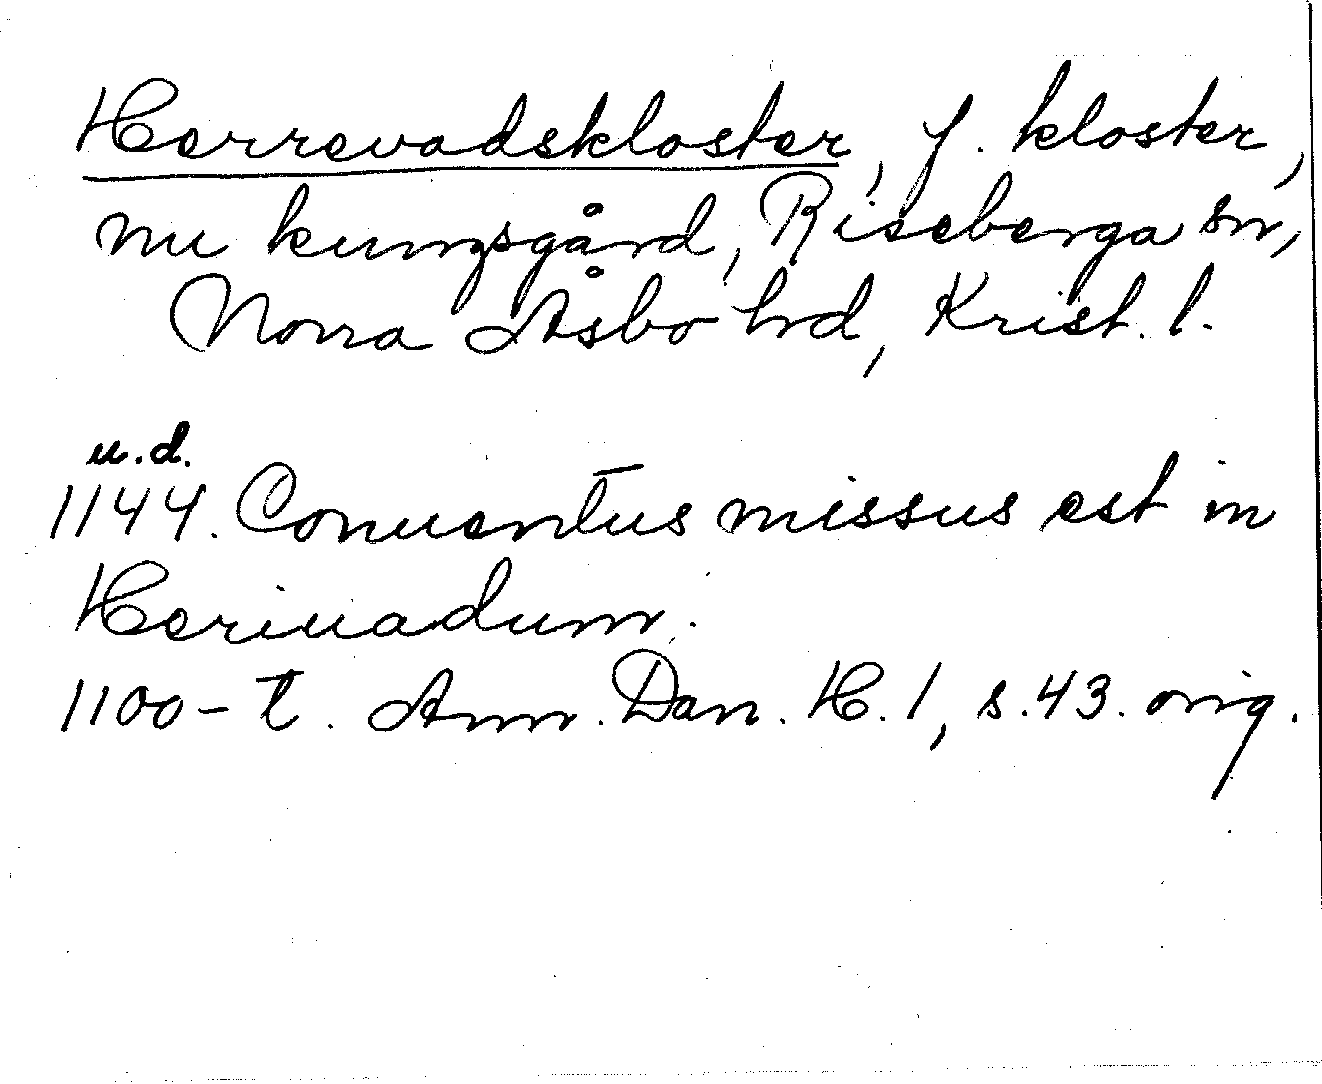 Herrevadskloster, f. kloster,
nu kungsgård, Riseberga sn,
Norra Åsbo hd, Krist. l.
u.d.
1144. Conuentus missus est in
Heriuadum.
1100-t. Ann. Dan. H. 1, s. 43. orig.